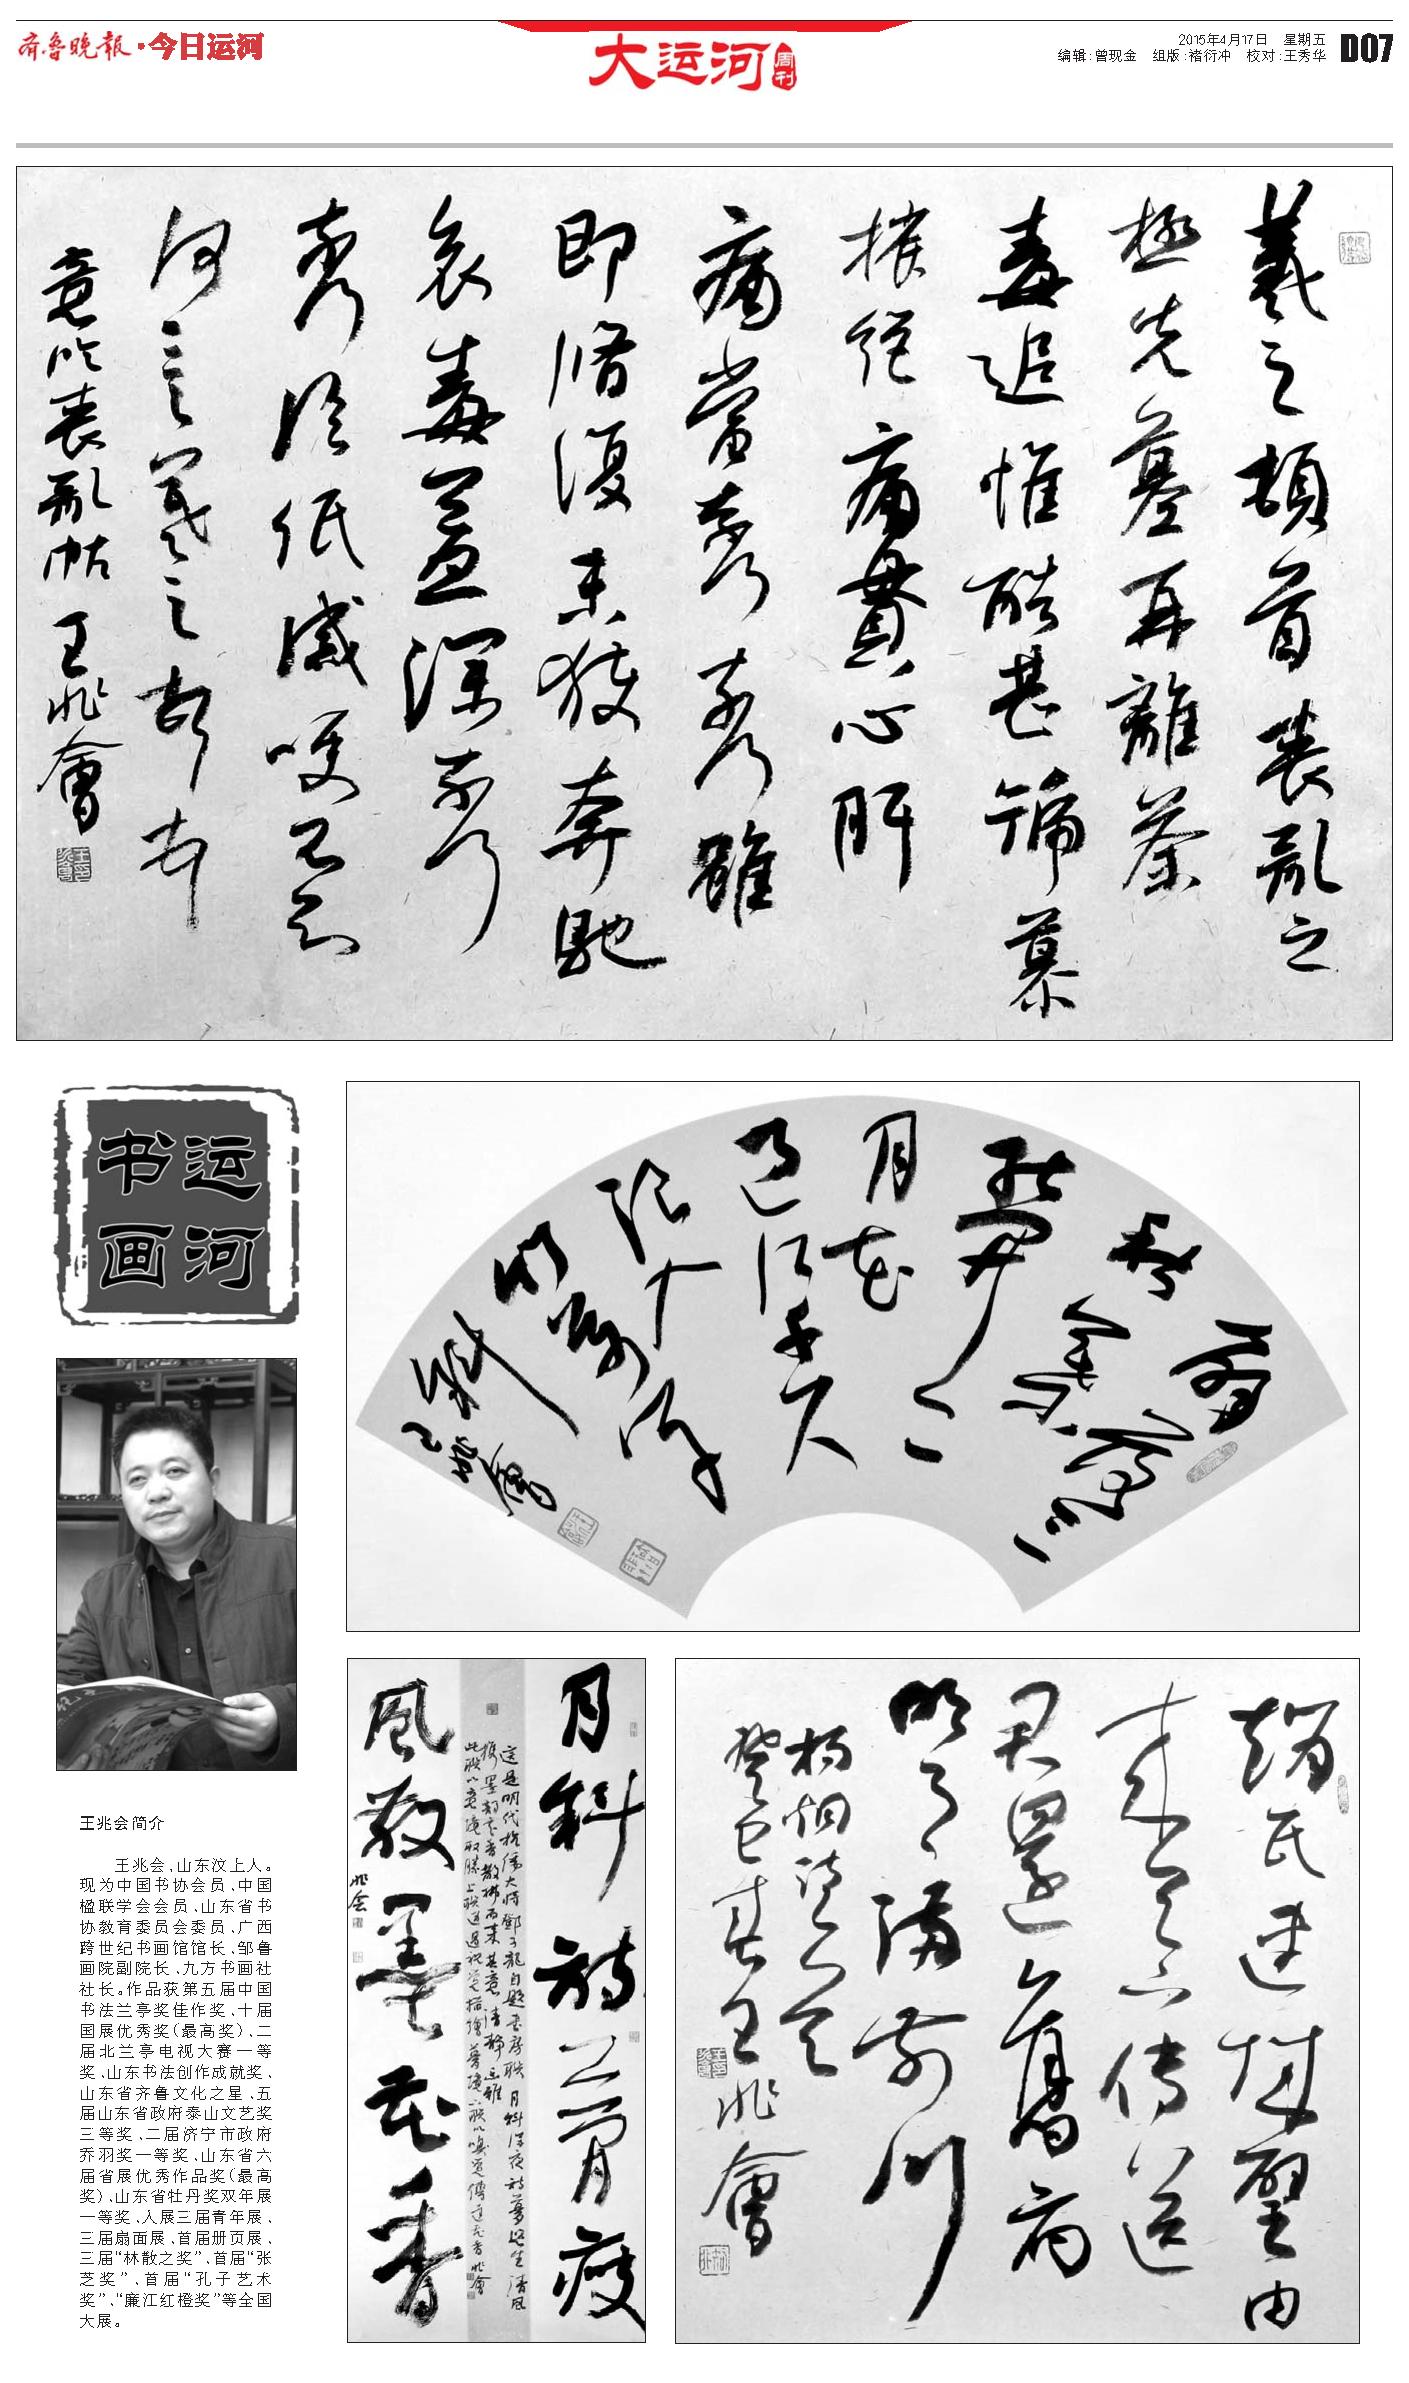 齐鲁晚报·今日运河
大运河
周刊
2015年4月17日 星期五
编辑:曾现金 组版:褚衍冲 校对:王秀华
D07
羲之頓首喪亂之
極先墓再離荼
毒追惟酷甚號慕
摧絕痛貫心肝
痛當奈何奈何雖
即脩復未獲奔馳
哀毒益深奈何
奈何臨紙感哽不知
何言羲之頓首
意臨喪亂帖 王兆會
运河
书画
解落三
秋葉能
開二
月花
過江千尺
浪入竹
萬竿
斜
王兆會
月斜詩夢瘦
風散墨花香
兆会
趙氏連城璧由
來天下傳送
君還舊府
明月滿前川
楊炯詩一首
癸巳春王兆會
王兆会简介
王兆会,山东汶上人。
现为中国书协会员、中国
楹联学会会员、山东省书
协教育委员会委员、广西
跨世纪书画馆馆长、邹鲁
画院副院长、九方书画社
社长。作品获第五届中国
书法兰亭奖佳作奖、十届
国展优秀奖(最高奖)、二
届北兰亭电视大赛一等
奖、山东书法创作成就奖、
山东省齐鲁文化之星、五
届山东省政府泰山文艺奖
三等奖、二届济宁市政府
乔羽奖一等奖、山东省六
届省展优秀作品奖(最高
奖)、山东省牡丹奖双年展
一等奖、入展三届青年展、
三届扇面展、首届册页展、
三届“林散之奖”、首届“张
芝奖”、首届“孔子艺术
奖”、“廉江红橙奖”等全国
大展。